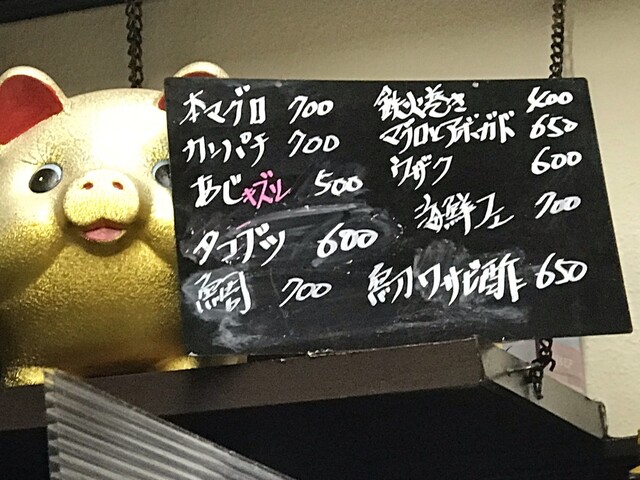 本マグロ 700
カンパチ 700
あじ 500
タコブツ 600
鯛 700
鉄火巻き 400
マグロとアボガド 650
ウザク 600
海鮮フェ 700
ワサビ酢 650